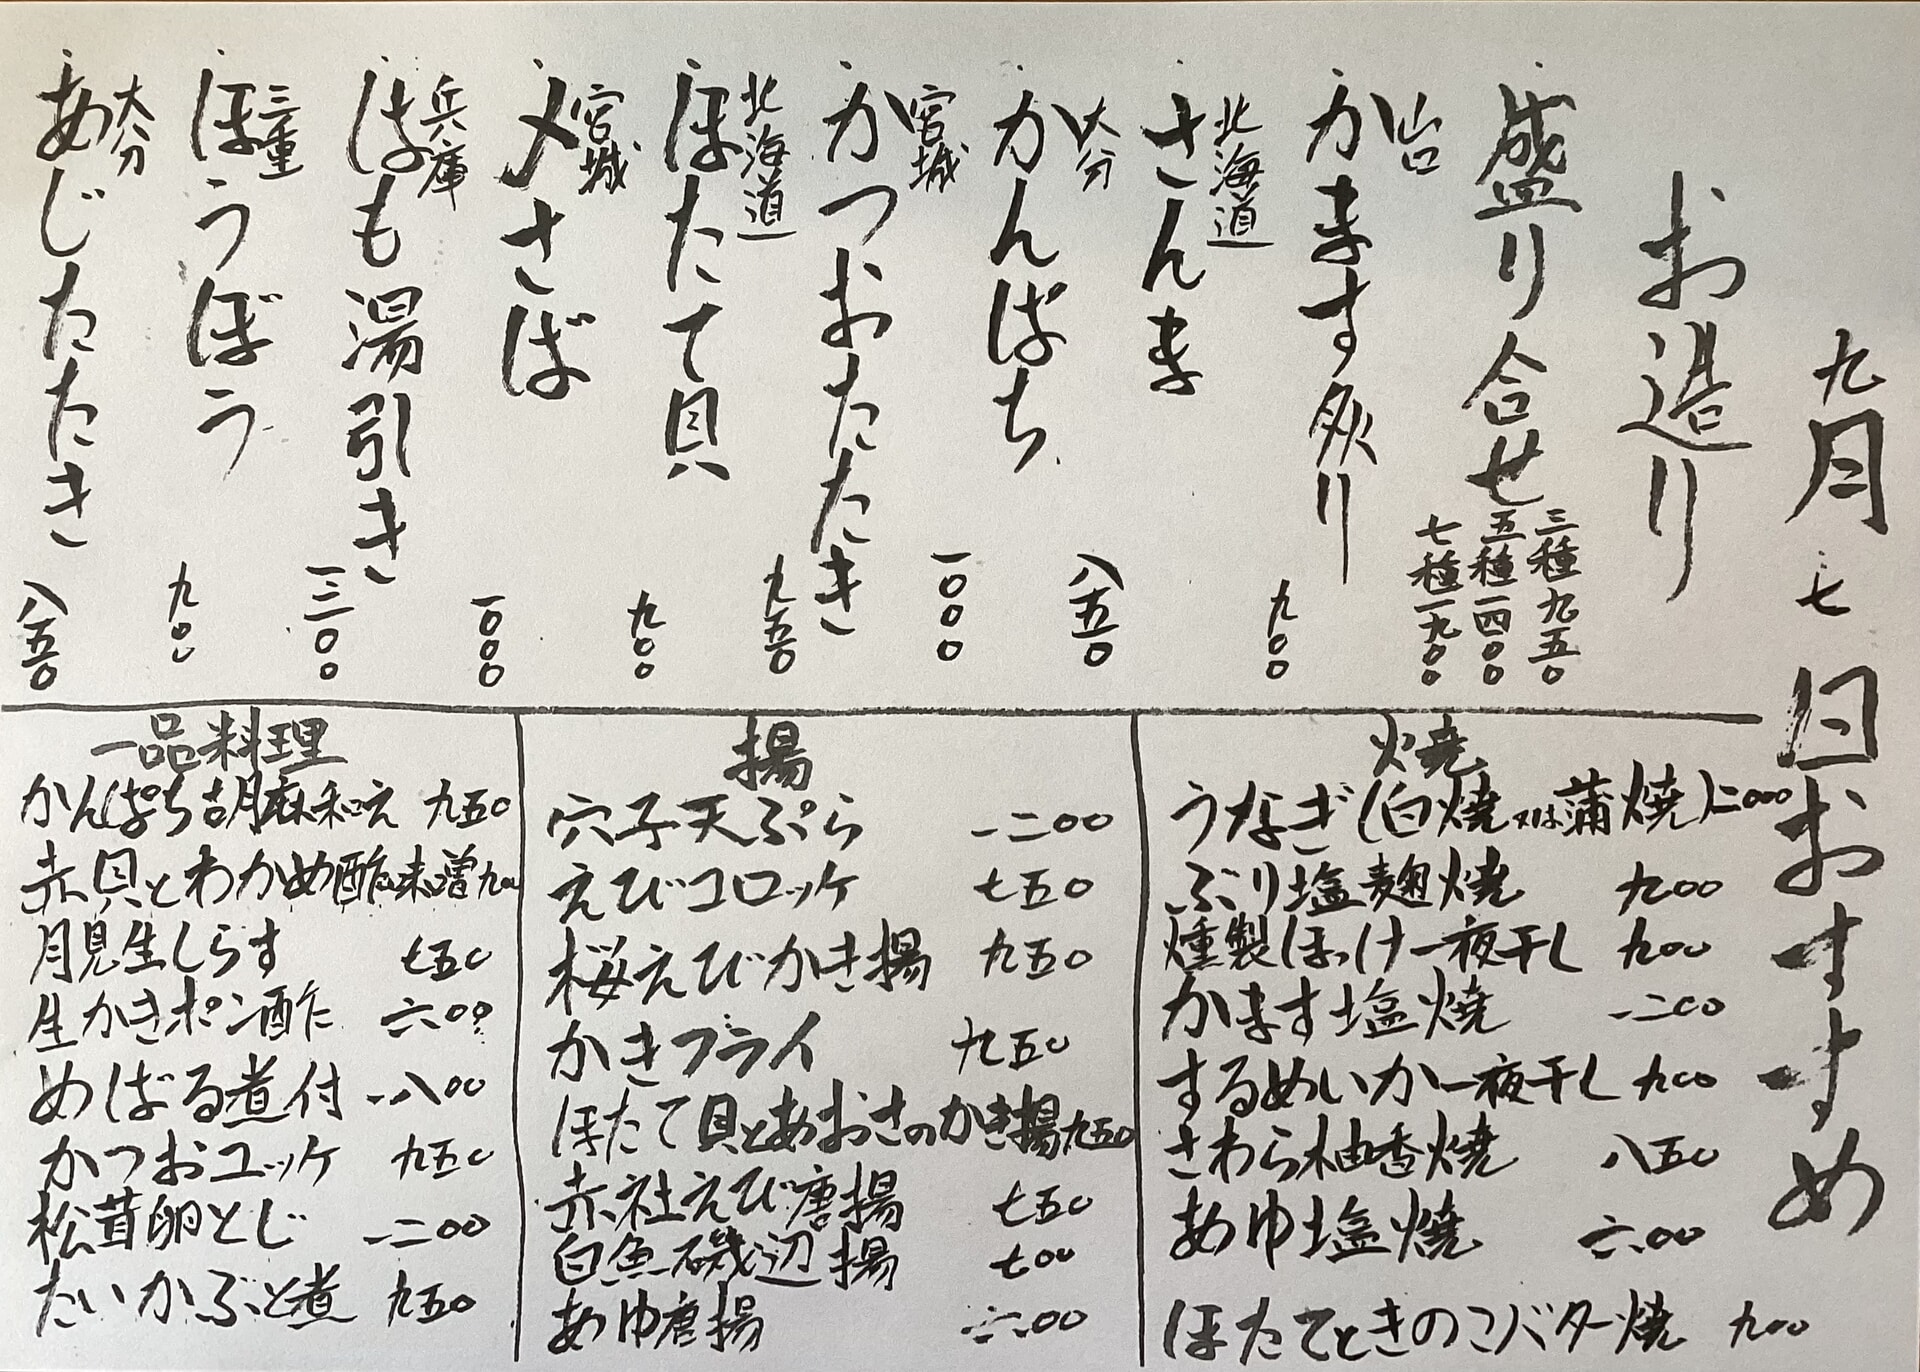 九月七日おすすめ
お造り
盛り合せ
三種九五〇
五種一四〇〇
七種一九〇〇
山口
かます炙り
九〇〇
北海道
さんま
八五〇
大分
かんぱち
一〇〇〇
宮城
かつおたたき
九五〇
北海道
ほたて貝
九〇〇
宮城
〆さば
一〇〇〇
兵庫
はも湯引き
一三〇〇
三重
ほうぼう
九〇〇
大分
あじたたき
八五〇
焼
うなぎ(白焼又は蒲焼)二〇〇〇
ぶり塩麹焼 九〇〇
燻製ほっけ一夜干し 九〇〇
かます塩焼 一二〇〇
するめいか一夜干し 九〇〇
さわら柚香焼 八五〇
あゆ塩焼 六〇〇
ほたてときのこバター焼 九〇〇
揚
穴子天ぷら 一二〇〇
えびコロッケ 七五〇
桜えびかき揚 九五〇
かきフライ 九五〇
ほたて貝とあおさのかき揚 九五〇
赤社えび唐揚 七五〇
白魚磯辺揚 七〇〇
あゆ唐揚 六〇〇
一品料理
かんぱち胡麻和え 九五〇
赤貝とわかめ酢味噌 九〇〇
月見生しらす 七五〇
生かきポン酢 六〇〇
めばる煮付 一八〇〇
かつおユッケ 九五〇
松茸卵とじ 一二〇〇
たいかぶと煮 九五〇